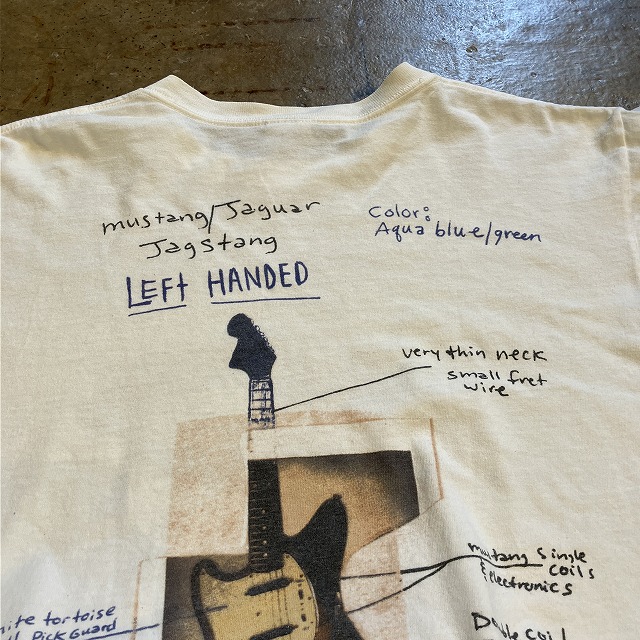 mustang/Jaguar
JagStang
LEFt HANDED
Color:
Aqua blue/green
very thin neck
small fret
wire
mustang Single
coils
& Electronics
tortoise
Pick Guard
Double coil